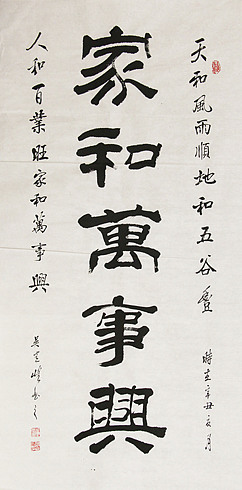 天和風雨順地和五谷登
時在辛丑夏月
家和萬事興
人和百業旺家和萬事興